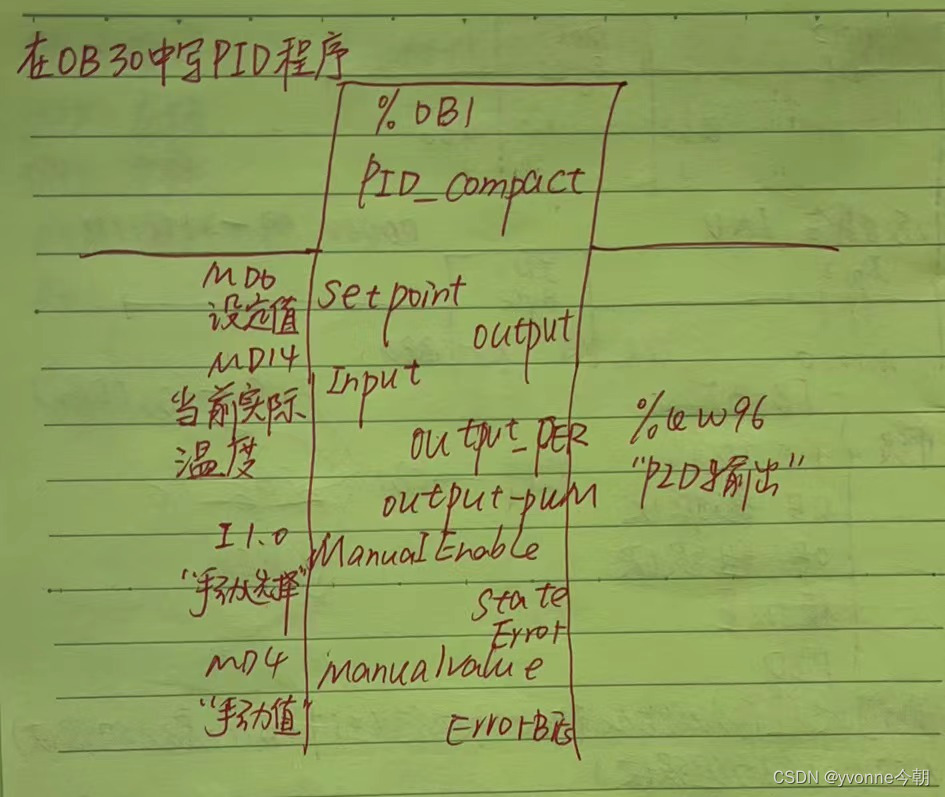 在OB30中写PID程序
% OB1
PID_compact
MD6
设定值
Setpoint
output
MD14
Input
当前实际
温度
output_PER
%QW96
"PID输出"
output-pwM
I1.0
ManualEnable
"手动选择"
State
Error
MD4
manualvalue
"手动值"
ErrorBits
CSDN @yvonne今朝